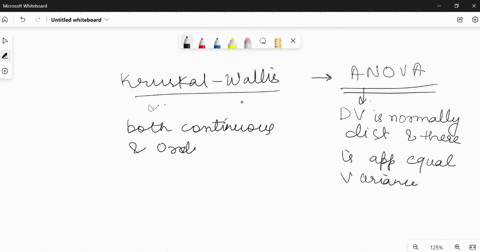 Microsoft Whiteboard
Untitled whiteboard
Kruskal-Wallis → ANOVA
both continuous
& Ord
DV is normally
dist & there
is app equal
variance
125%